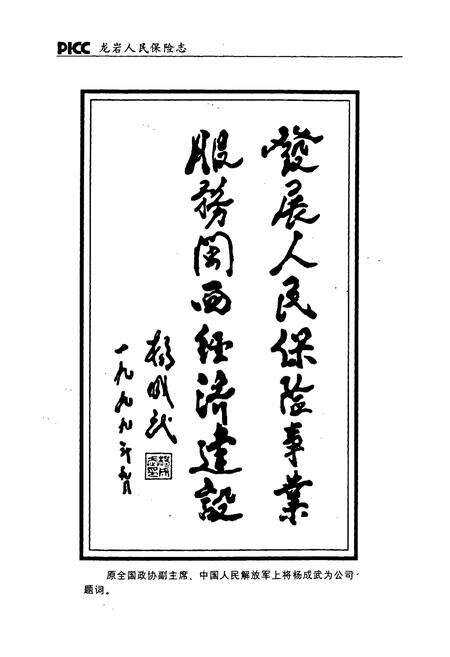 PICC 龙岩人民保险志
發展人民保险事業
服務闽西经济建設
杨成武
一九九九年九月
原全国政协副主席、中国人民解放军上将杨成武为公司
题词。